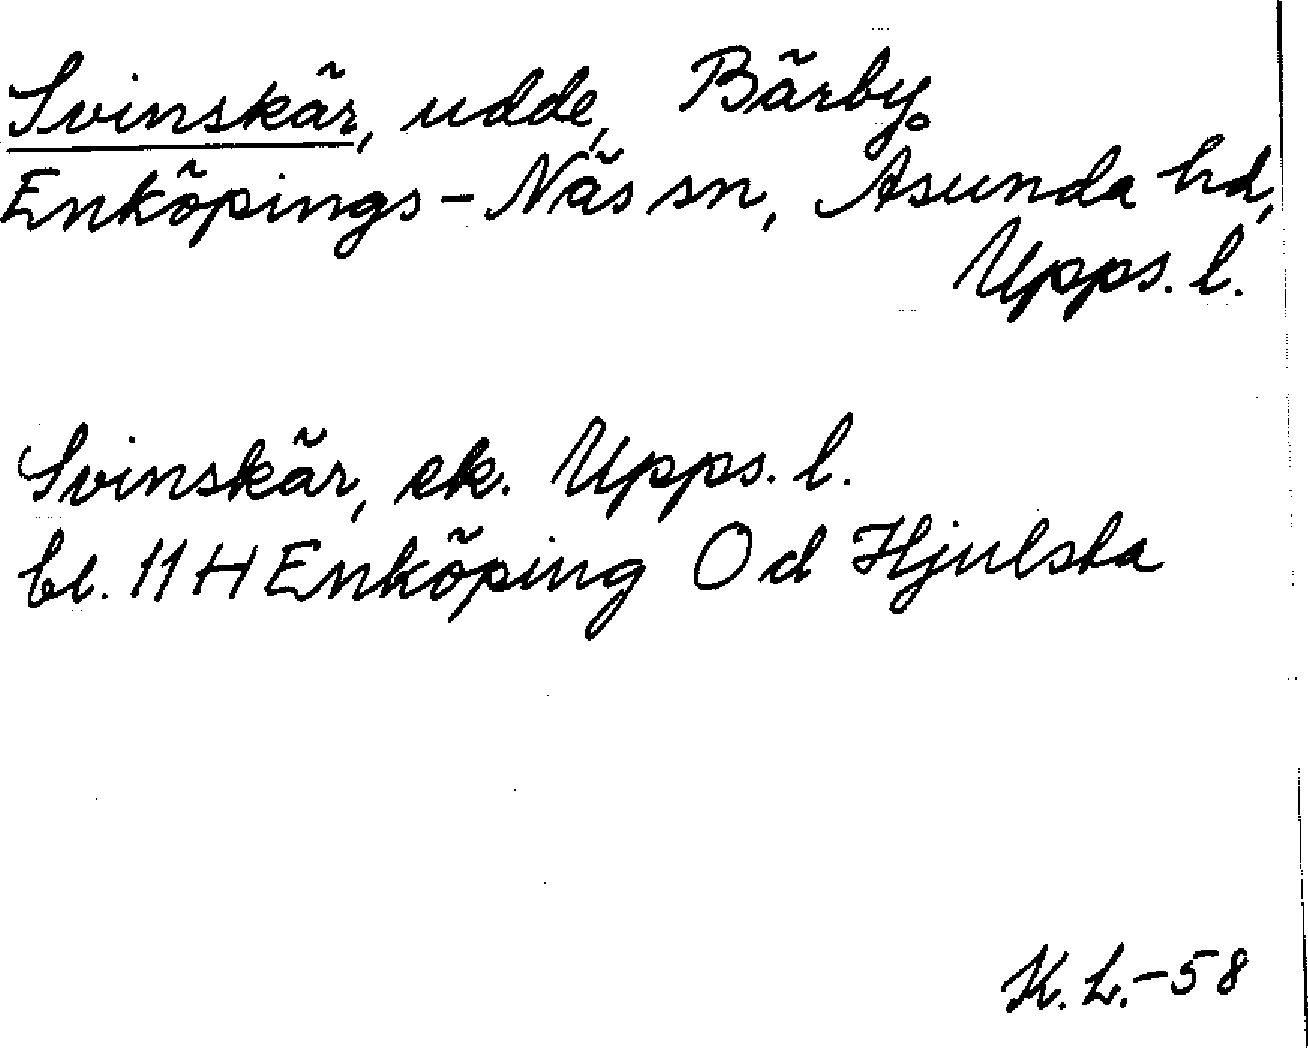 Svinskär, udde, Bärby
Enköpings-Näs sn, Åsunda hd,
Upps. l.
Svinskär, ek. Upps. l.
bl. 11 H Enköping Od Hjulsta
K.L.-58